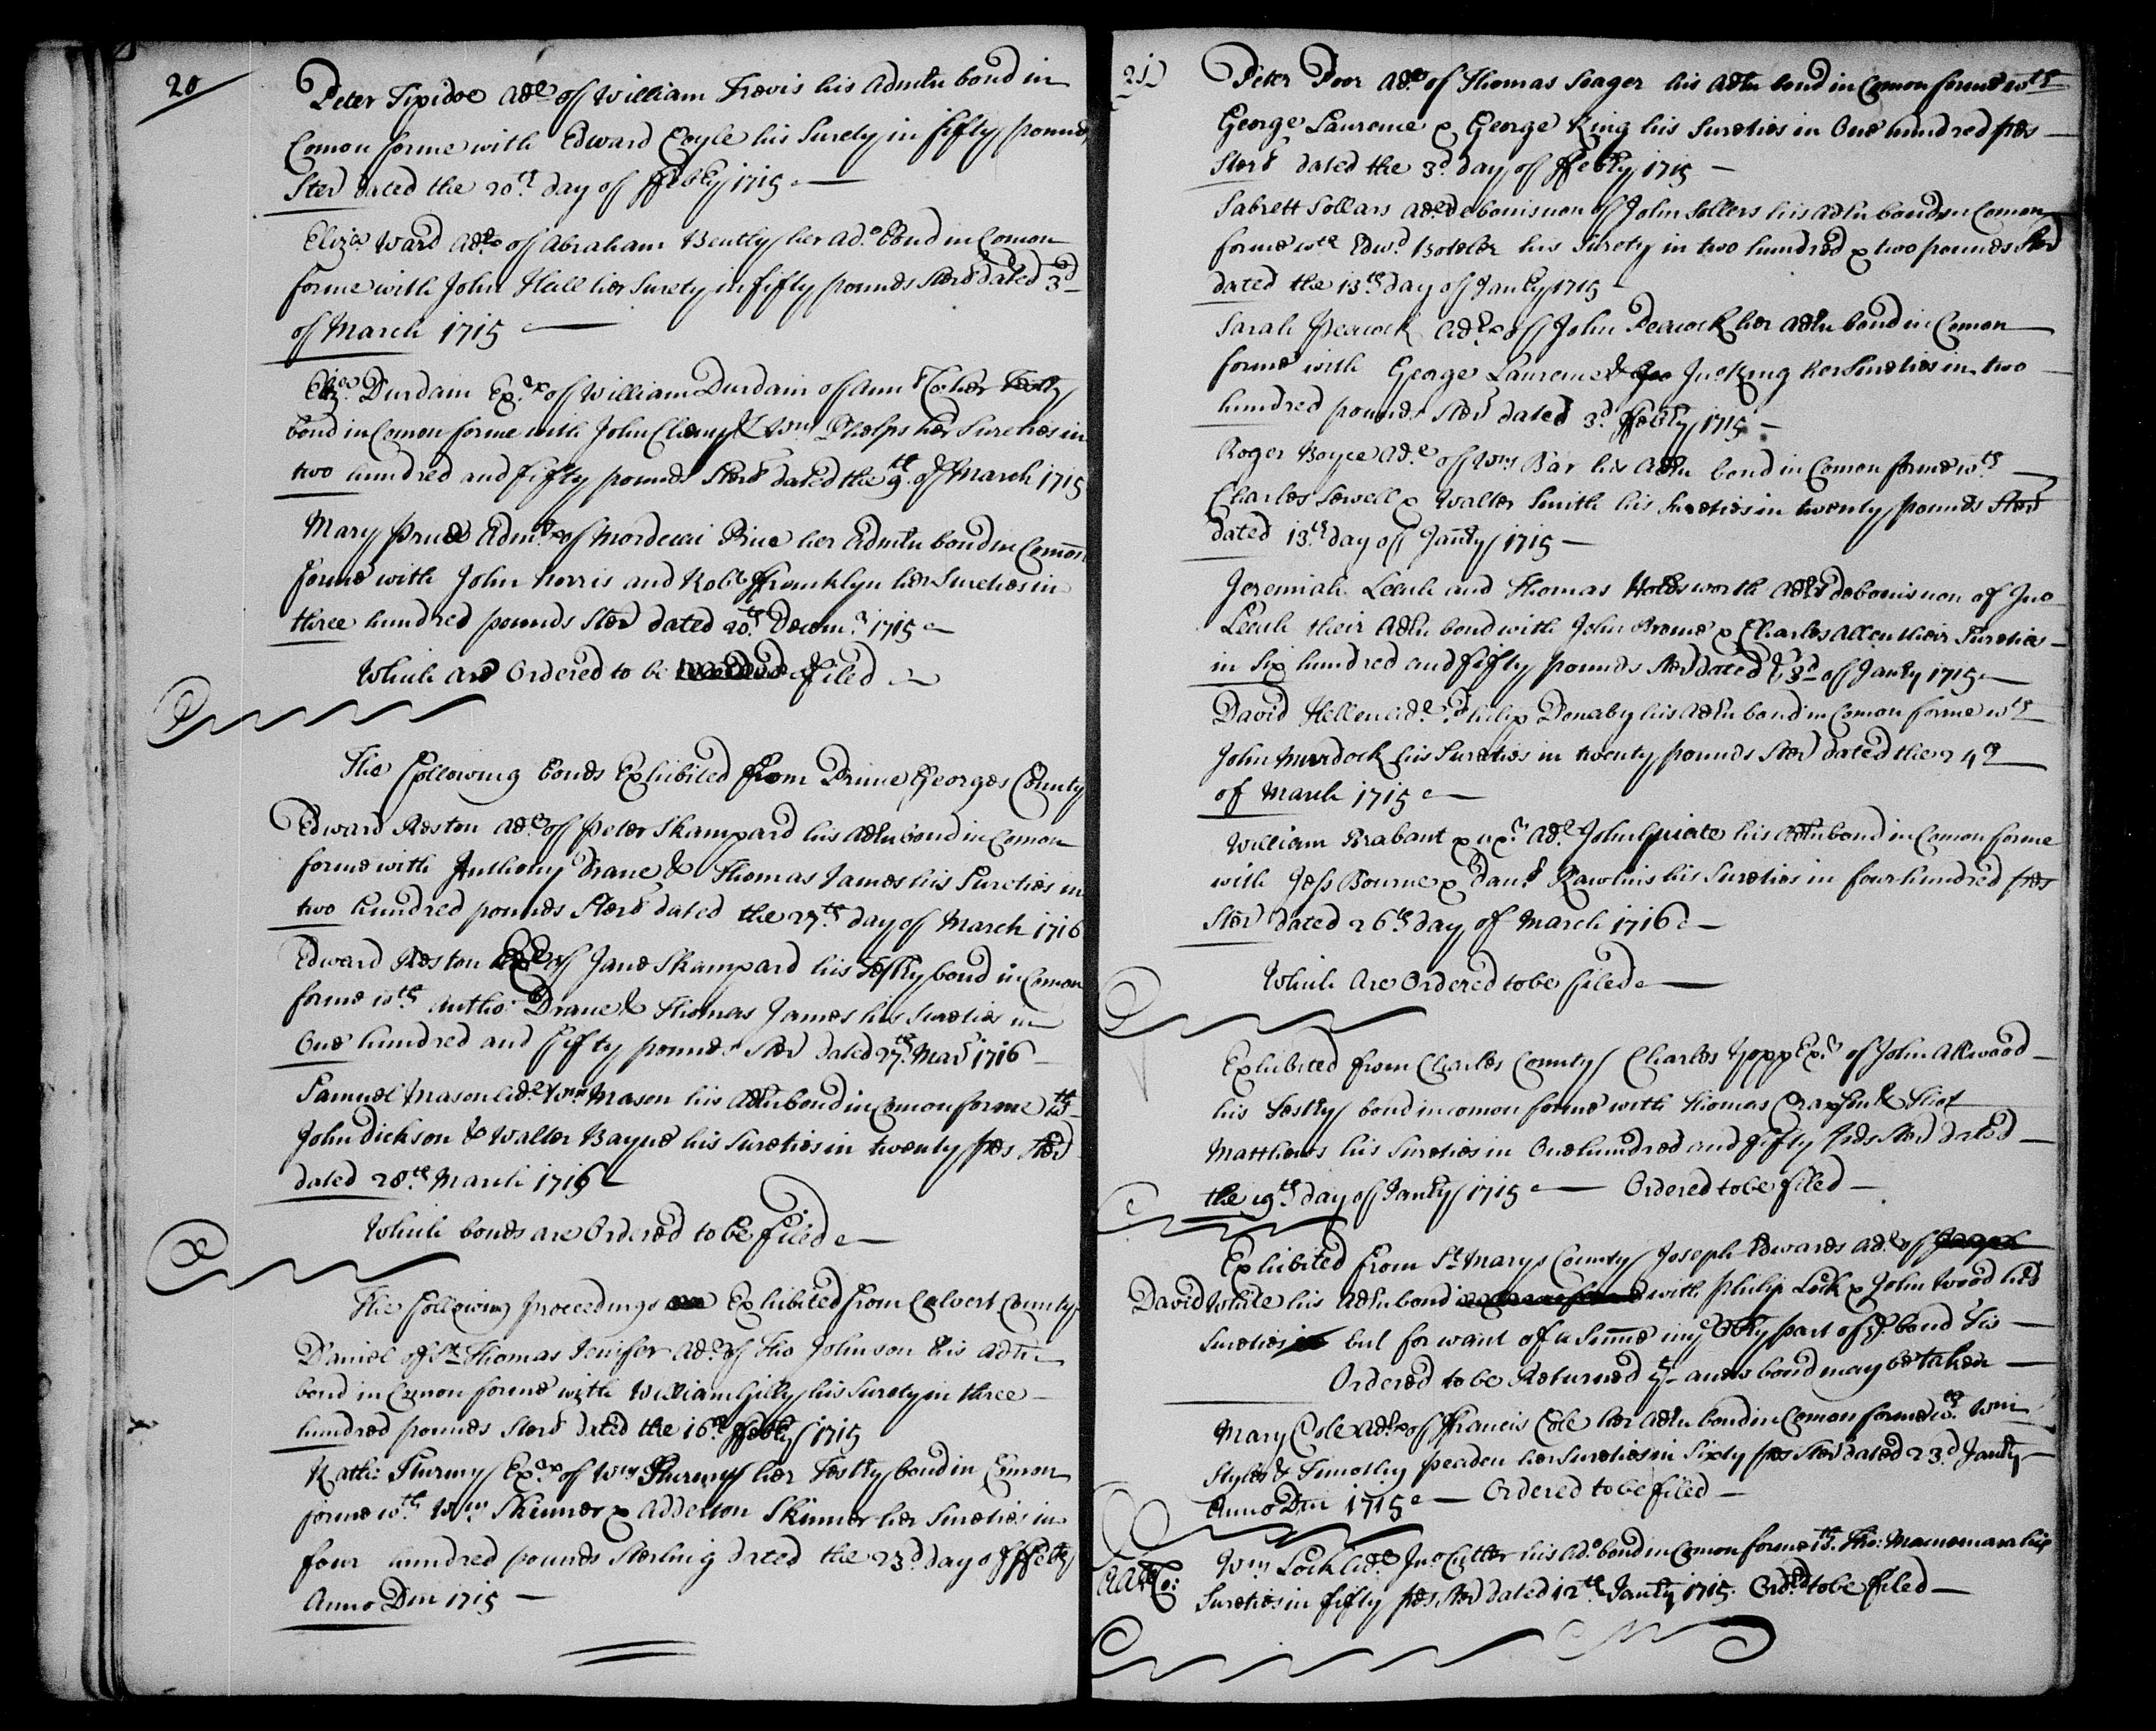 20
Peter Tipidoe Ad.e of William Trevis his Admtn bond in
Comon forme with Edward Coyle his Surety in fifty pounds
Ster dated the 20th day of ffebry 1715
Eliza Ward Ad.x of Abraham Bently her Ad.o Bond in Comon
forme with John Hall her Surety in fifty pounds Sterd dated 3d
of March 1715
Eliz.a Durdain Ex.x of William Durdain of Ann Co her Testy
bond in Comon forme with John Cheny & Wm Phelps her Sureties in
two hundred and fifty pounds Sterd dated the 9th of March 1715
Mary Price Adm.x of Mordecai Price her Admtn bond in Comon
forme with John Norris and Robt ffranklyn her Sureties in
three hundred pounds Ster dated 20th Decem.r 1715
Which are Ordered to be filed
The following bonds Exhibited from Prince Georges County
Edward Reston Ad.e of Peter Skampard his Adtn bond in Comon
forme with Anthony Drane & Thomas James his Sureties in
two hundred pounds Sterd dated the 27th day of March 1716
Edward Reston Ex.r of Jane Skampard his Testry bond in Comon
forme wth Antho: Drane & Thomas James his Sureties in
One hundred and fifty pounds Ster dated 27th Mar 1716
Samuel Mason Ad.e Wm Mason his Adtn bond in Comon forme wth
John Dickson & Walter Bayne his Sureties in twenty pds Sterd
dated 28th March 1716
Which bonds are Ordered to be filed
The following proceedings are Exhibited from Calvert County
Daniel of St Thomas Jenifer Ad.e of Tho Johnson his Adtn
bond in Comon forme with William Gilly his Surety in three
hundred pounds Sterd dated the 16th ffebry 1715
Kath: Sturmy Ex.x of Wm Sturmy her Testry bond in Comon
forme wth Wm Skinner & Adderton Skinner her Sureties in
four hundred pounds Sterling dated the 23d day of ffebry
Anno Dm 1715
21
Peter Poor Ad.e of Thomas Seager his Adtn bond in Comon forme wth
George Laurence & George King his Sureties in One hundred pds
Sterd dated the 3d day of ffebry 1715
Sabrett Sollars Ad.e de bonis non of John Sollers his Adtn bond in Comon
forme wth Edwd Boteler his Surety in two hundred & two pounds Ster
dated the 13th day of Janry 1715
Sarah Peacock Ad.x of John Peacock her Adtn bond in Comon
forme with George Laurence & Geo Jno King her Sureties in two
hundred pounds Ster dated 3d ffebry 1715
Roger Boyce Ad.e of Wm Bar his Adtn bond in Comon forme wth
Charles Sewell & Walter Smith his Sureties in twenty pounds Ster
dated 13th day of Janry 1715
Jeremiah Leach and Thomas Holdsworth Adrs de bonis non of Jno
Leach their Adtn bond with John Brome & Charles Allen their Sureties
in Six hundred and fifty pounds Ster dated ye 3d of Janry 1715
David Hellen Ad.e Philip Denaby his Adtn bond in Comon forme wth
John Murdock his Sureties in twenty pounds Ster dated the 24th
of March 1715
William Brabant & ux.r Ad.e John Guiate his Adtn bond in Comon forme
with Jess Bourne & Danl Rawlins his Sureties in four hundred pds
Ster dated 26th day of March 1716
Which Are Ordered to be filed
Exhibited from Charles County Charles Yopp Ex.r of John Allwood
his Testry bond in comon forme with Thomas Craxson & Thos
Matthews his Sureties in One hundred and fifty pds Ster dated
the 19th day of Janry 1715 Ordered to be filed
Exhibited from St Marys County Joseph Edwards Ad.e of Joseph
David White his Adtn bond with Philip Lock & John Wood his
Sureties but for want of a Summe in ye Obly part of ye bond tis
Ordered to be Returned yt anew bond may be taken
Mary Cole Ad.x of ffrancis Cole her Adtn bond in Comon forme wth Wm
Styles & Timothy Peaden her Sureties in Sixty pds Ster dated 23d Janry
Anno Dm 1715 Ordered to be filed
AA Co:
Wm Lock Ad.e Jno Cutter his Ad.o bond in Comon forme wth Tho: Macnemara his
Sureties in fifty pds Ster dated 12th Janry 1715. Ordrd to be filed